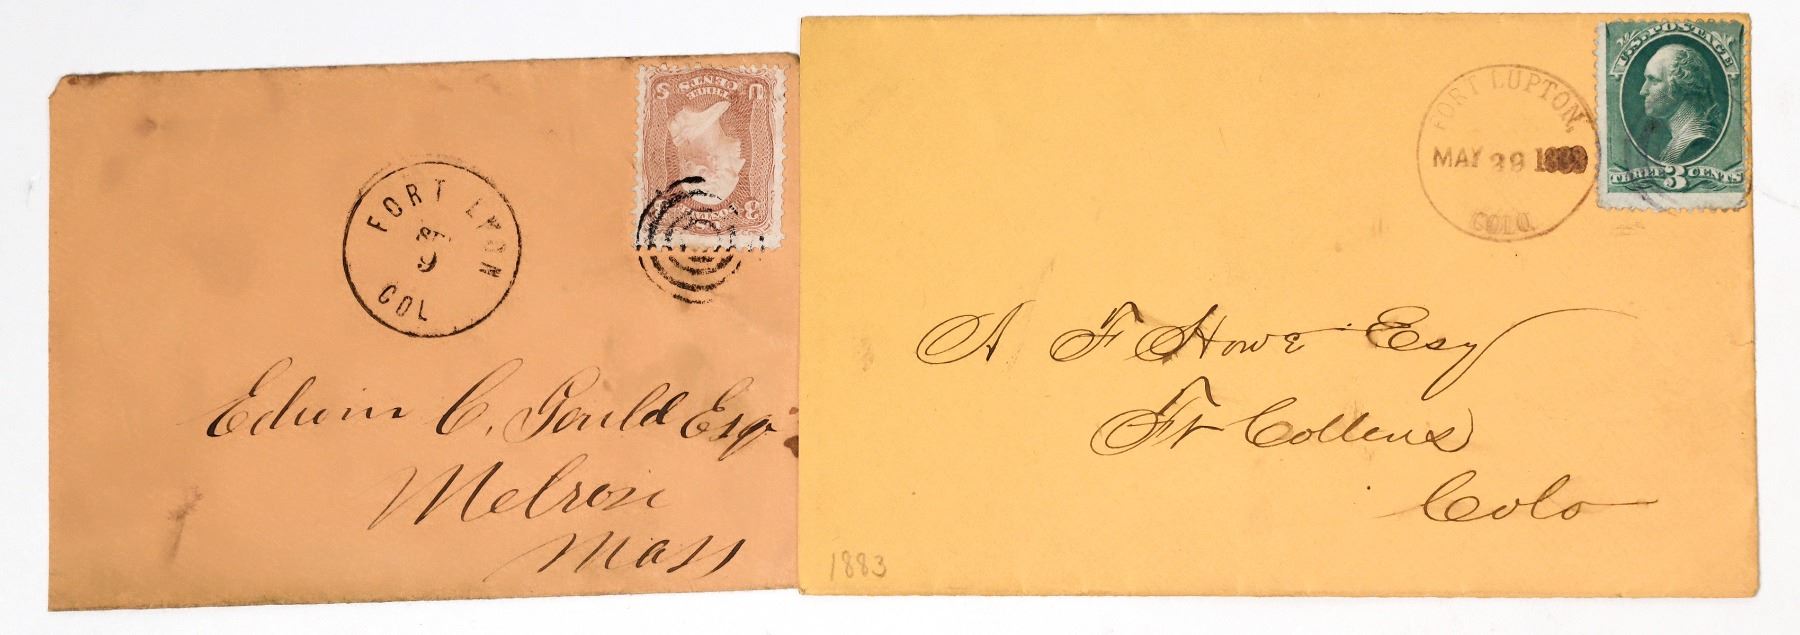 U THREE CENTS S
3
FORT LYON
9
COL
Edwin C. Gould Esq
Melrose
Mass
U.S. POSTAGE
THREE 3 CENTS
FORT LUPTON,
MAY 29
COLO.
A F Howe Esq
Ft Collens
Colo
1883